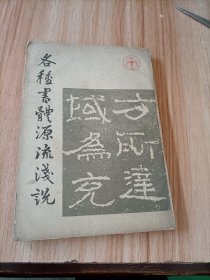 各種書體源流淺說
方所達
域為克